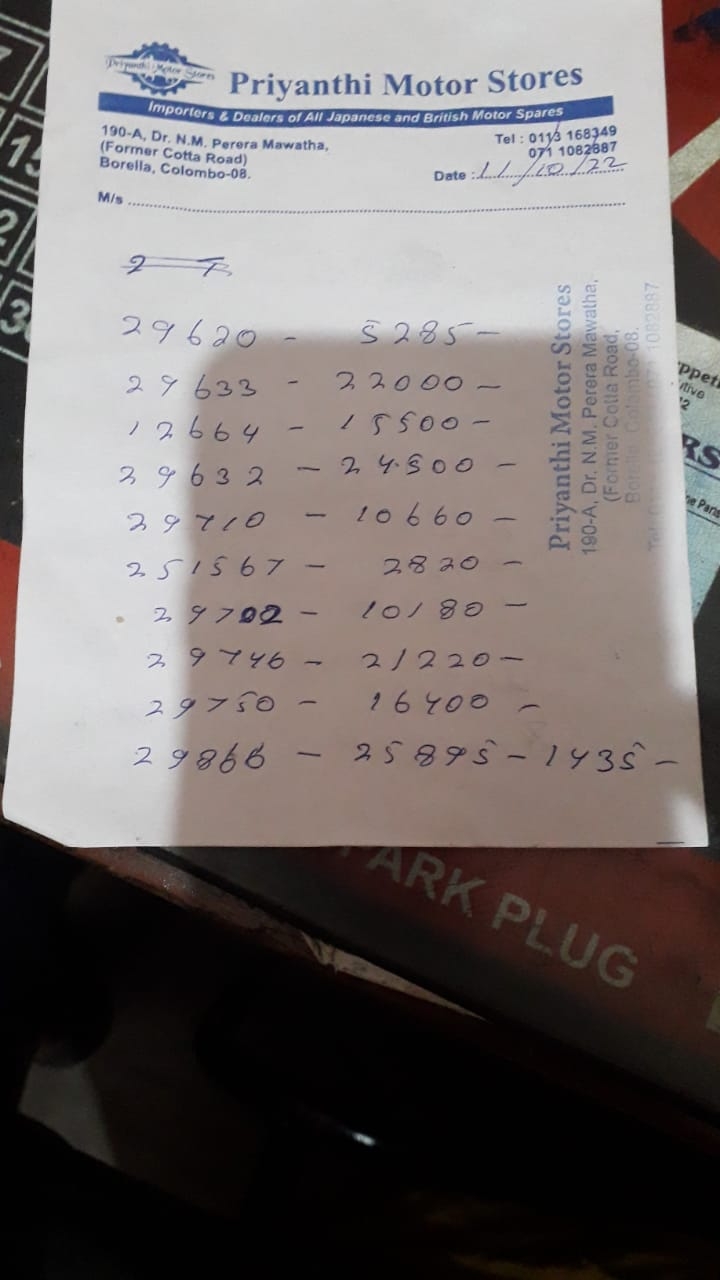 Priyanthi Motor Stores
Priyanthi Motor Stores
Importers & Dealers of All Japanese and British Motor Spares
190-A, Dr. N.M. Perera Mawatha,
(Former Cotta Road)
Borella, Colombo-08.
Tel : 0113 168349
071 1082887
Date : 11/10/22
M/s
29620 - 5285 -
29633 - 22000 -
12664 - 15500 -
29632 - 24500 -
29710 - 10660 -
251567 - 2820 -
29702 - 10180 -
29746 - 21220 -
29750 - 16400 -
29866 - 25895 - 1435 -
Priyanthi Motor Stores
190-A, Dr. N.M. Perera Mawatha,
(Former Cotta Road,
Borella, Colombo-08.
1082887
RS
PARK PLUG